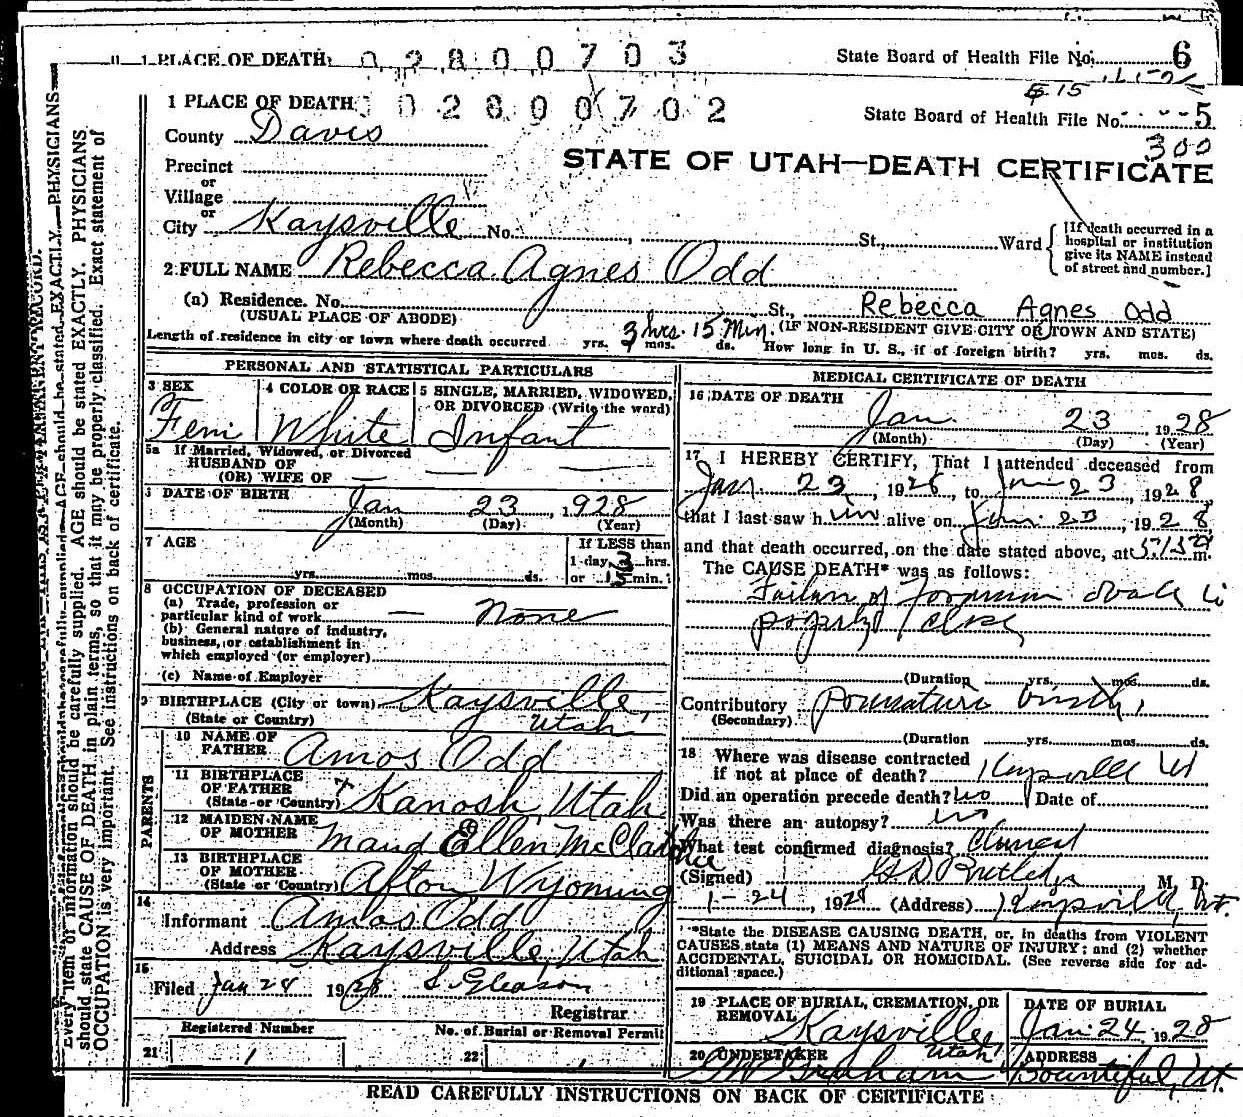 1 PLACE OF DEATH 02800703 State Board of Health File No. 6
1 PLACE OF DEATH 02800702 State Board of Health File No. 5
15
300
County Davis
STATE OF UTAH—DEATH CERTIFICATE
Precinct
or
Village
or
City Kaysville No. , St., Ward
[If death occurred in a
hospital or institution
give its NAME instead
of street and number.]
2 FULL NAME Rebecca Agnes Odd
(a) Residence. No. St., Rebecca Agnes Odd
(USUAL PLACE OF ABODE) (IF NON-RESIDENT GIVE CITY OR TOWN AND STATE)
3 hrs. 15 Min.
Length of residence in city or town where death occurred yrs. mos. ds. How long in U. S., if of foreign birth? yrs. mos. ds.
PERSONAL AND STATISTICAL PARTICULARS
3 SEX
Fem
4 COLOR OR RACE
White
5 SINGLE, MARRIED, WIDOWED,
OR DIVORCED (Write the word)
Infant
5a If Married, Widowed, or Divorced
HUSBAND OF
(OR) WIFE OF
DATE OF BIRTH Jan 23, 1928
(Month) (Day) (Year)
7 AGE
yrs. mos. ds.
If LESS than
1 day, 3 hrs.
or 15 min.
8 OCCUPATION OF DECEASED
(a) Trade, profession or
particular kind of work — None
(b) General nature of industry,
business, or establishment in
which employed (or employer)
(c) Name of Employer
9 BIRTHPLACE (City or town) Kaysville,
(State or Country) Utah
PARENTS
10 NAME OF
FATHER Amos Odd
11 BIRTHPLACE
OF FATHER
(State or Country) Kanosh, Utah
12 MAIDEN NAME
OF MOTHER Maud Ellen McClar
13 BIRTHPLACE
OF MOTHER
(State or Country) Afton Wyoming
14
Informant Amos Odd
Address Kaysville, Utah
15
Filed Jan 24 1928 S. Gleason
Registrar
Registered Number No. of Burial or Removal Permit
21 1 22 1
MEDICAL CERTIFICATE OF DEATH
16 DATE OF DEATH
Jan. 23 1928
(Month) (Day) (Year)
17 I HEREBY CERTIFY, That I attended deceased from
Jan. 23, 1928, to Jan 23, 1928,
that I last saw h alive on Jan. 23, 1928
and that death occurred, on the date stated above, at m.
The CAUSE DEATH* was as follows:
Failure of Foramen ovale to
properly close
(Duration yrs. mos. ds.
Contributory premature birth,
(Secondary)
(Duration yrs. mos. ds.
18 Where was disease contracted
if not at place of death? Kaysville Ut
Did an operation precede death? no Date of
Was there an autopsy? no
What test confirmed diagnosis? Clinical
(Signed) Rutledge M. D.
1-24, 1928 (Address) Kaysville, Ut.
*State the DISEASE CAUSING DEATH, or, in deaths from VIOLENT
CAUSES state (1) MEANS AND NATURE OF INJURY; and (2) whether
ACCIDENTAL, SUICIDAL OR HOMICIDAL. (See reverse side for ad-
ditional space.)
19 PLACE OF BURIAL, CREMATION, OR
REMOVAL Kaysville,
Utah
DATE OF BURIAL
Jan. 24 1928
20 UNDERTAKER
Graham
ADDRESS
Bountiful, Ut.
READ CAREFULLY INSTRUCTIONS ON BACK OF CERTIFICATE
Every item of information should be carefully supplied. AGE should be stated EXACTLY. PHYSICIANS
should state CAUSE OF DEATH in plain terms, so that it may be properly classified. Exact statement of
OCCUPATION is very important. See instructions on back of certificate.